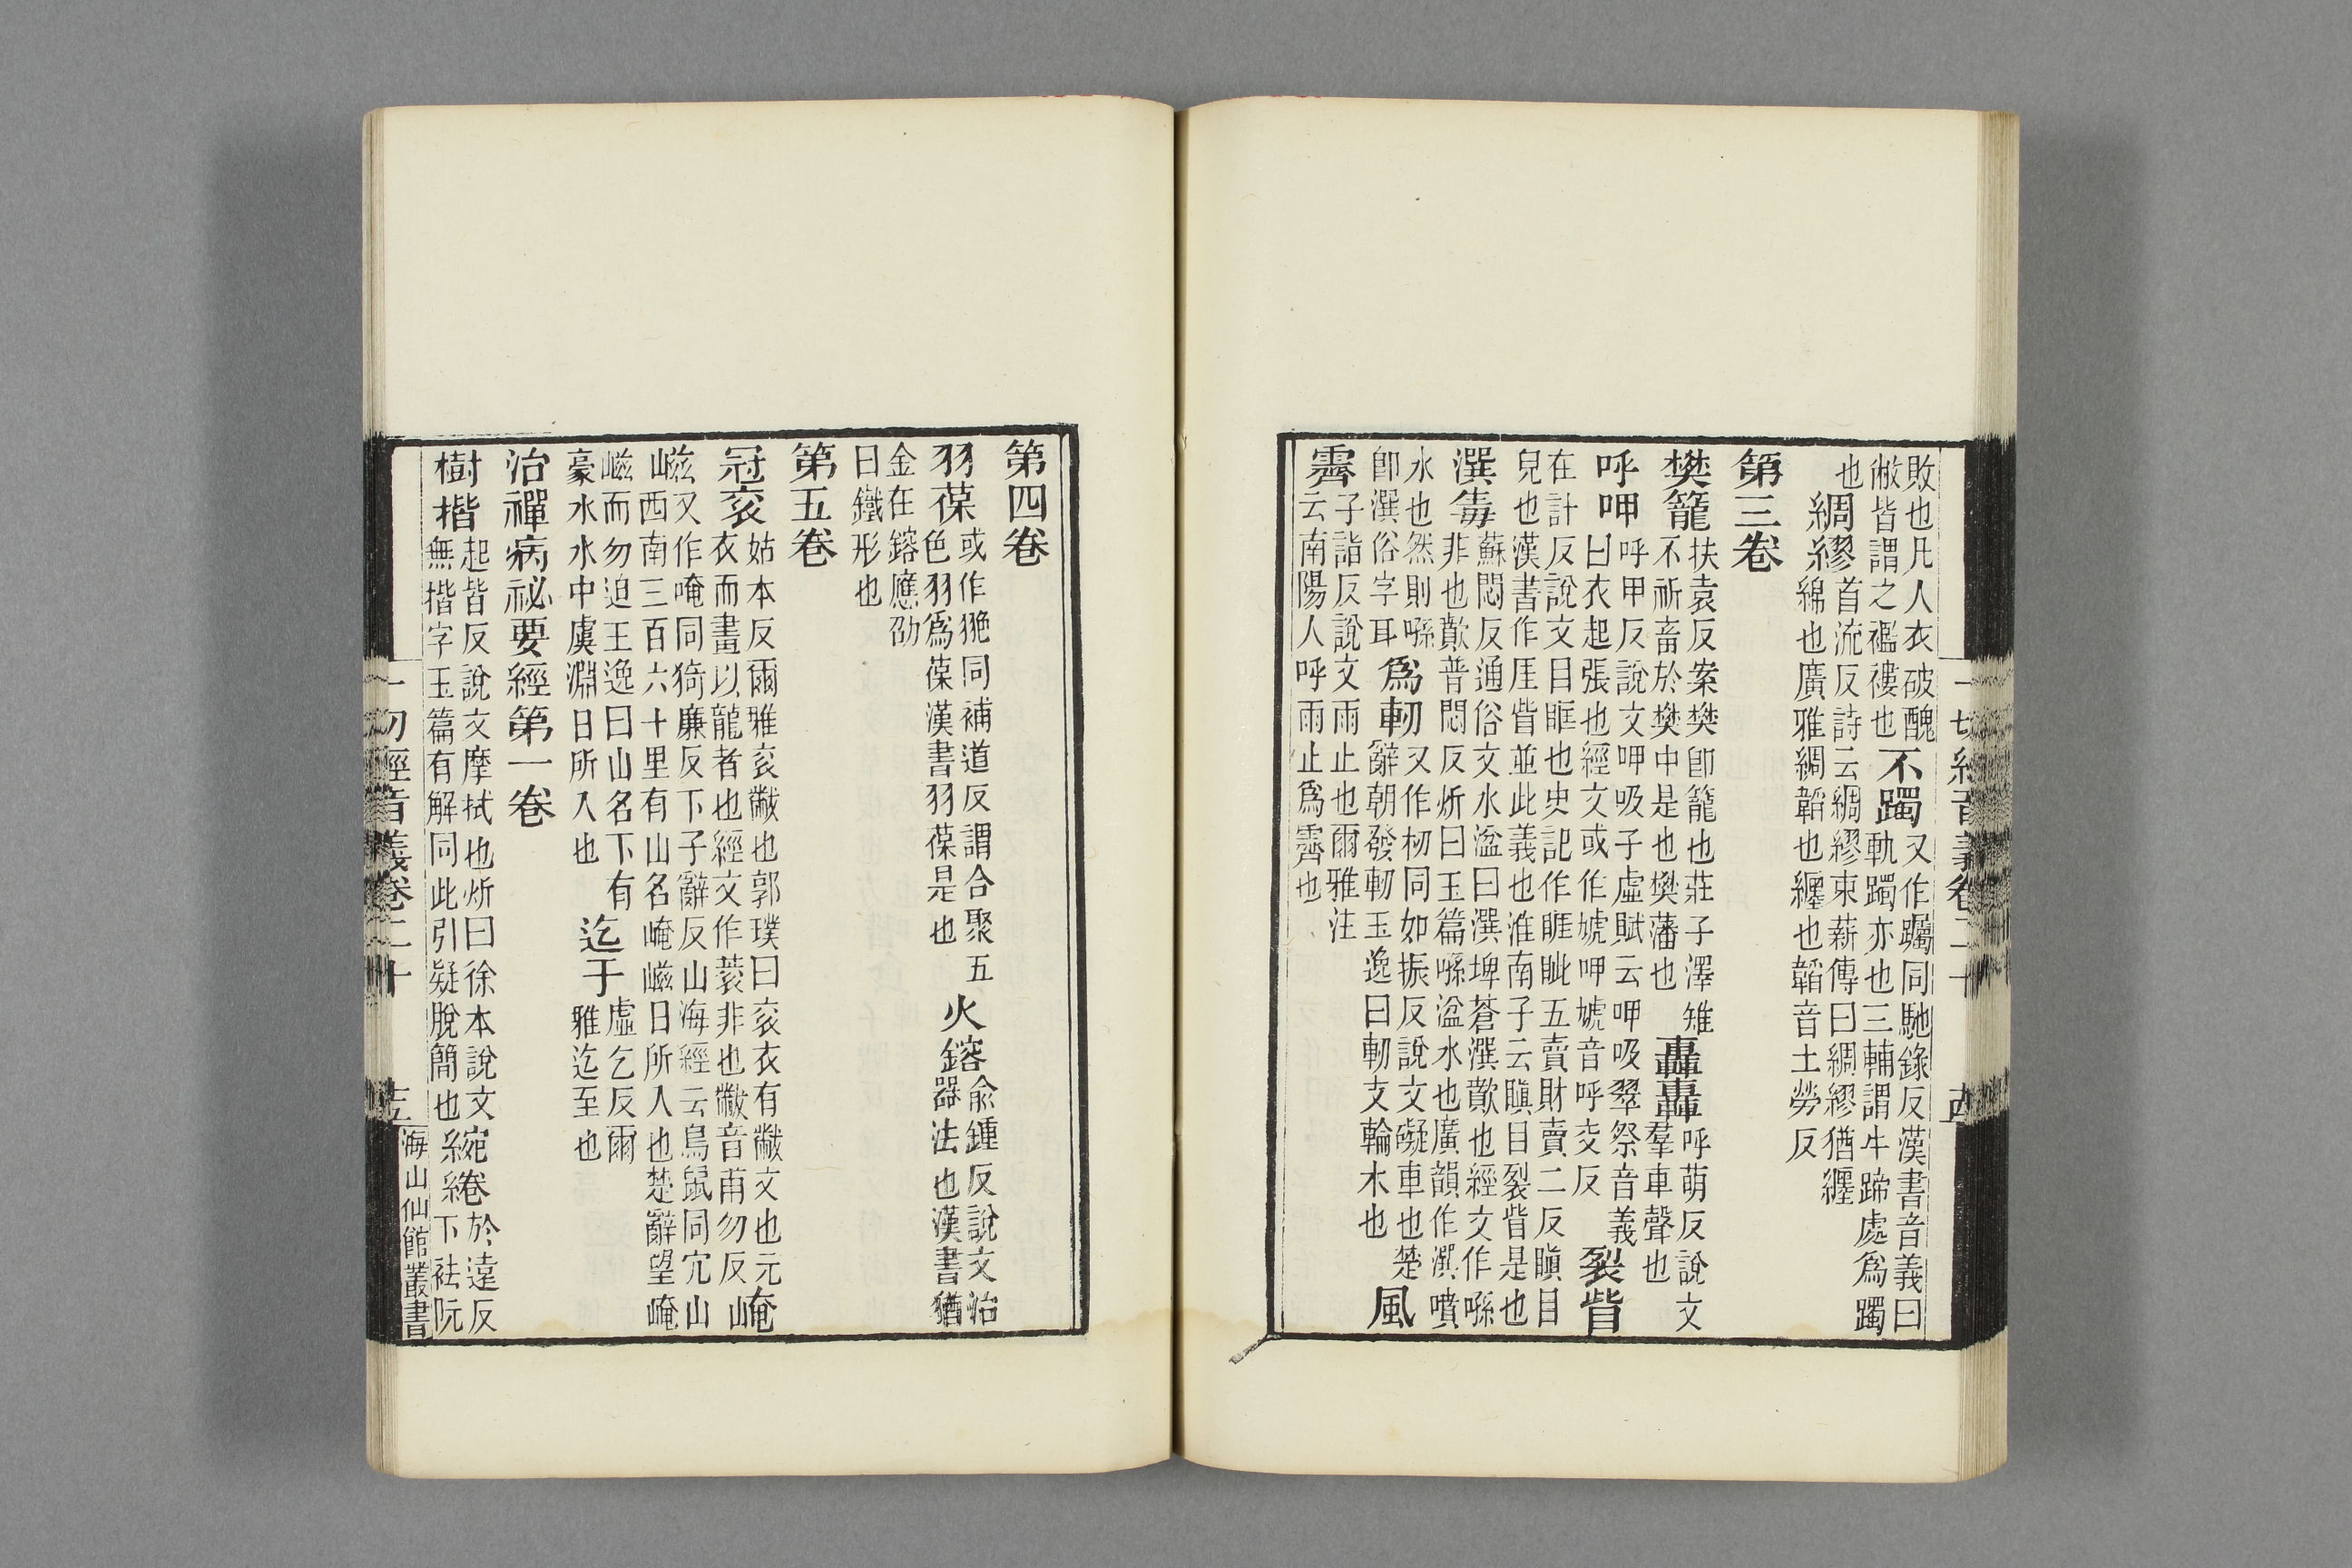 敗也凡人衣破醜敝皆謂之襤褸也不躅又作躅同馳錄反漢書音義曰軌躅亦也三輔謂牛蹄處爲躅
也綢繆首流反詩云綢繆束薪傳曰綢繆猶纏綿也廣雅綢韜也纏也韜音土勞反
第三卷
樊籠扶袁反案樊卽籠也莊子澤雉不祈畜於樊中是也樊藩也轟轟呼萌反說文羣車聲也
呼呷呼甲反說文呷吸子虛賦云呷吸翠祭音義曰衣起張也經文或作唬呷唬音呼交反裂眥
在計反說文目眶也史記作睚眦五賣財賣二反瞋目皃也漢書作厓眥並此義也淮南子云瞋目裂眥是也
潠毒蘇悶反通俗文水湓曰潠埤蒼潠歕也經文作㗅非也歕普悶反炘曰玉篇㗅湓水也廣韻作潠噴
水也然則㗅卽潠俗字耳爲軔又作杒同如振反說文礙車也楚辭朝發軔王逸曰軔支輪木也風
霽子詣反說文雨止也爾雅注云南陽人呼雨止爲霽也
一切經音義卷二十
第四卷
羽葆或作㲋同補道反謂合聚五色羽爲葆漢書羽葆是也火鎔俞鍾反說文冶器法也漢書猶
金在鎔應劭曰鐵形也
第五卷
冠衮姑本反爾雅衮黻也郭璞曰衮衣有黻文也元衣而畫以龍者也經文作蓘非也黻音甫勿反崦
嵫又作唵同猗廉反下子辭反山海經云鳥鼠同穴山山西南三百六十里有山名崦嵫日所入也楚辭望崦
嵫而勿迫王逸曰山名下有豪水水中虞淵日所入也迄于虛乞反爾雅迄至也
治禪病祕要經第一卷
樹揩起皆反說文摩拭也炘曰徐本說文無揩字玉篇有解同此引疑脫簡也綩綖於遠反下袪阮
一切經音義卷二十
海山仙館叢書